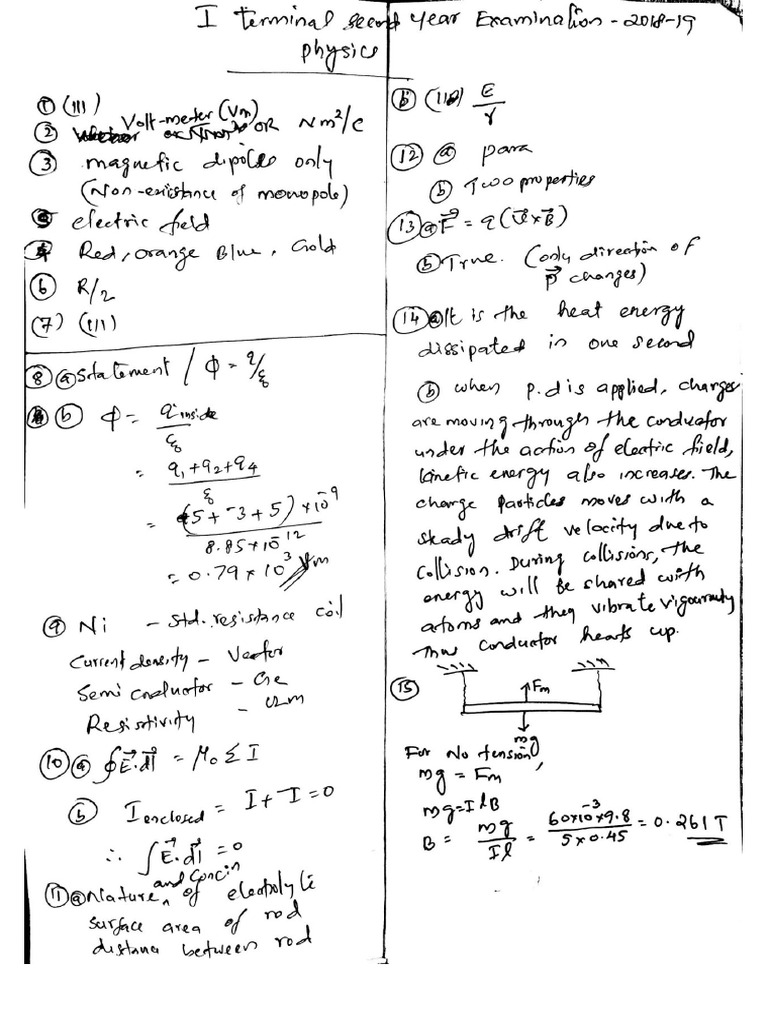 I terminal second year Examination - 2018-19
physics
① (111)
② Volt-meter (Vm) OR Nm²/C
③ magnetic dipoles only
(Non-existance of monopole)
⑤ electric field
④ Red, orange Blue, Gold
⑥ R/2
(7) (111)
⑧ ⓐ Statement / ϕ = q/ε₀
ⓑ ϕ = q inside / ε₀
= q₁+q₂+q₄ / ε₀
= (5 + -3 + 5) × 10⁻⁹ / 8.85×10⁻¹²
= 0.79 × 10³ Vm
⑨ Ni - Std. resistance coil
Current density - Vector
Semi conductor - Ge
Resistivity - Ωm
⑩ ⓐ ∮E⃗.dl⃗ = μ₀ Σ I
ⓑ I enclosed = I + -I = 0
∴ ∫E⃗.dl⃗ = 0
⑪ ⓐ Nature and Concn of electrolyte
surface area of rod
distance between rod
ⓑ (11) E/r
⑫ ⓐ para
ⓑ Two properties
⑬ ⓐ F⃗ = q(v⃗×B⃗)
ⓑ True. (only direction of
p⃗ changes)
⑭ ⓐ It is the heat energy
dissipated in one second
ⓑ when p.d is applied, charges
are moving through the conductor
under the action of electric field,
kinetic energy also increases. The
charge particles moves with a
steady drift velocity due to
collision. During collisions, the
energy will be shared with
atoms and they vibrate vigourously
Thus conductor heats up.
⑮ Fm
mg
For No tension,
mg = Fm
mg = I l B
B = mg / Il = 60×10⁻³×9.8 / 5×0.45 = 0.261 T